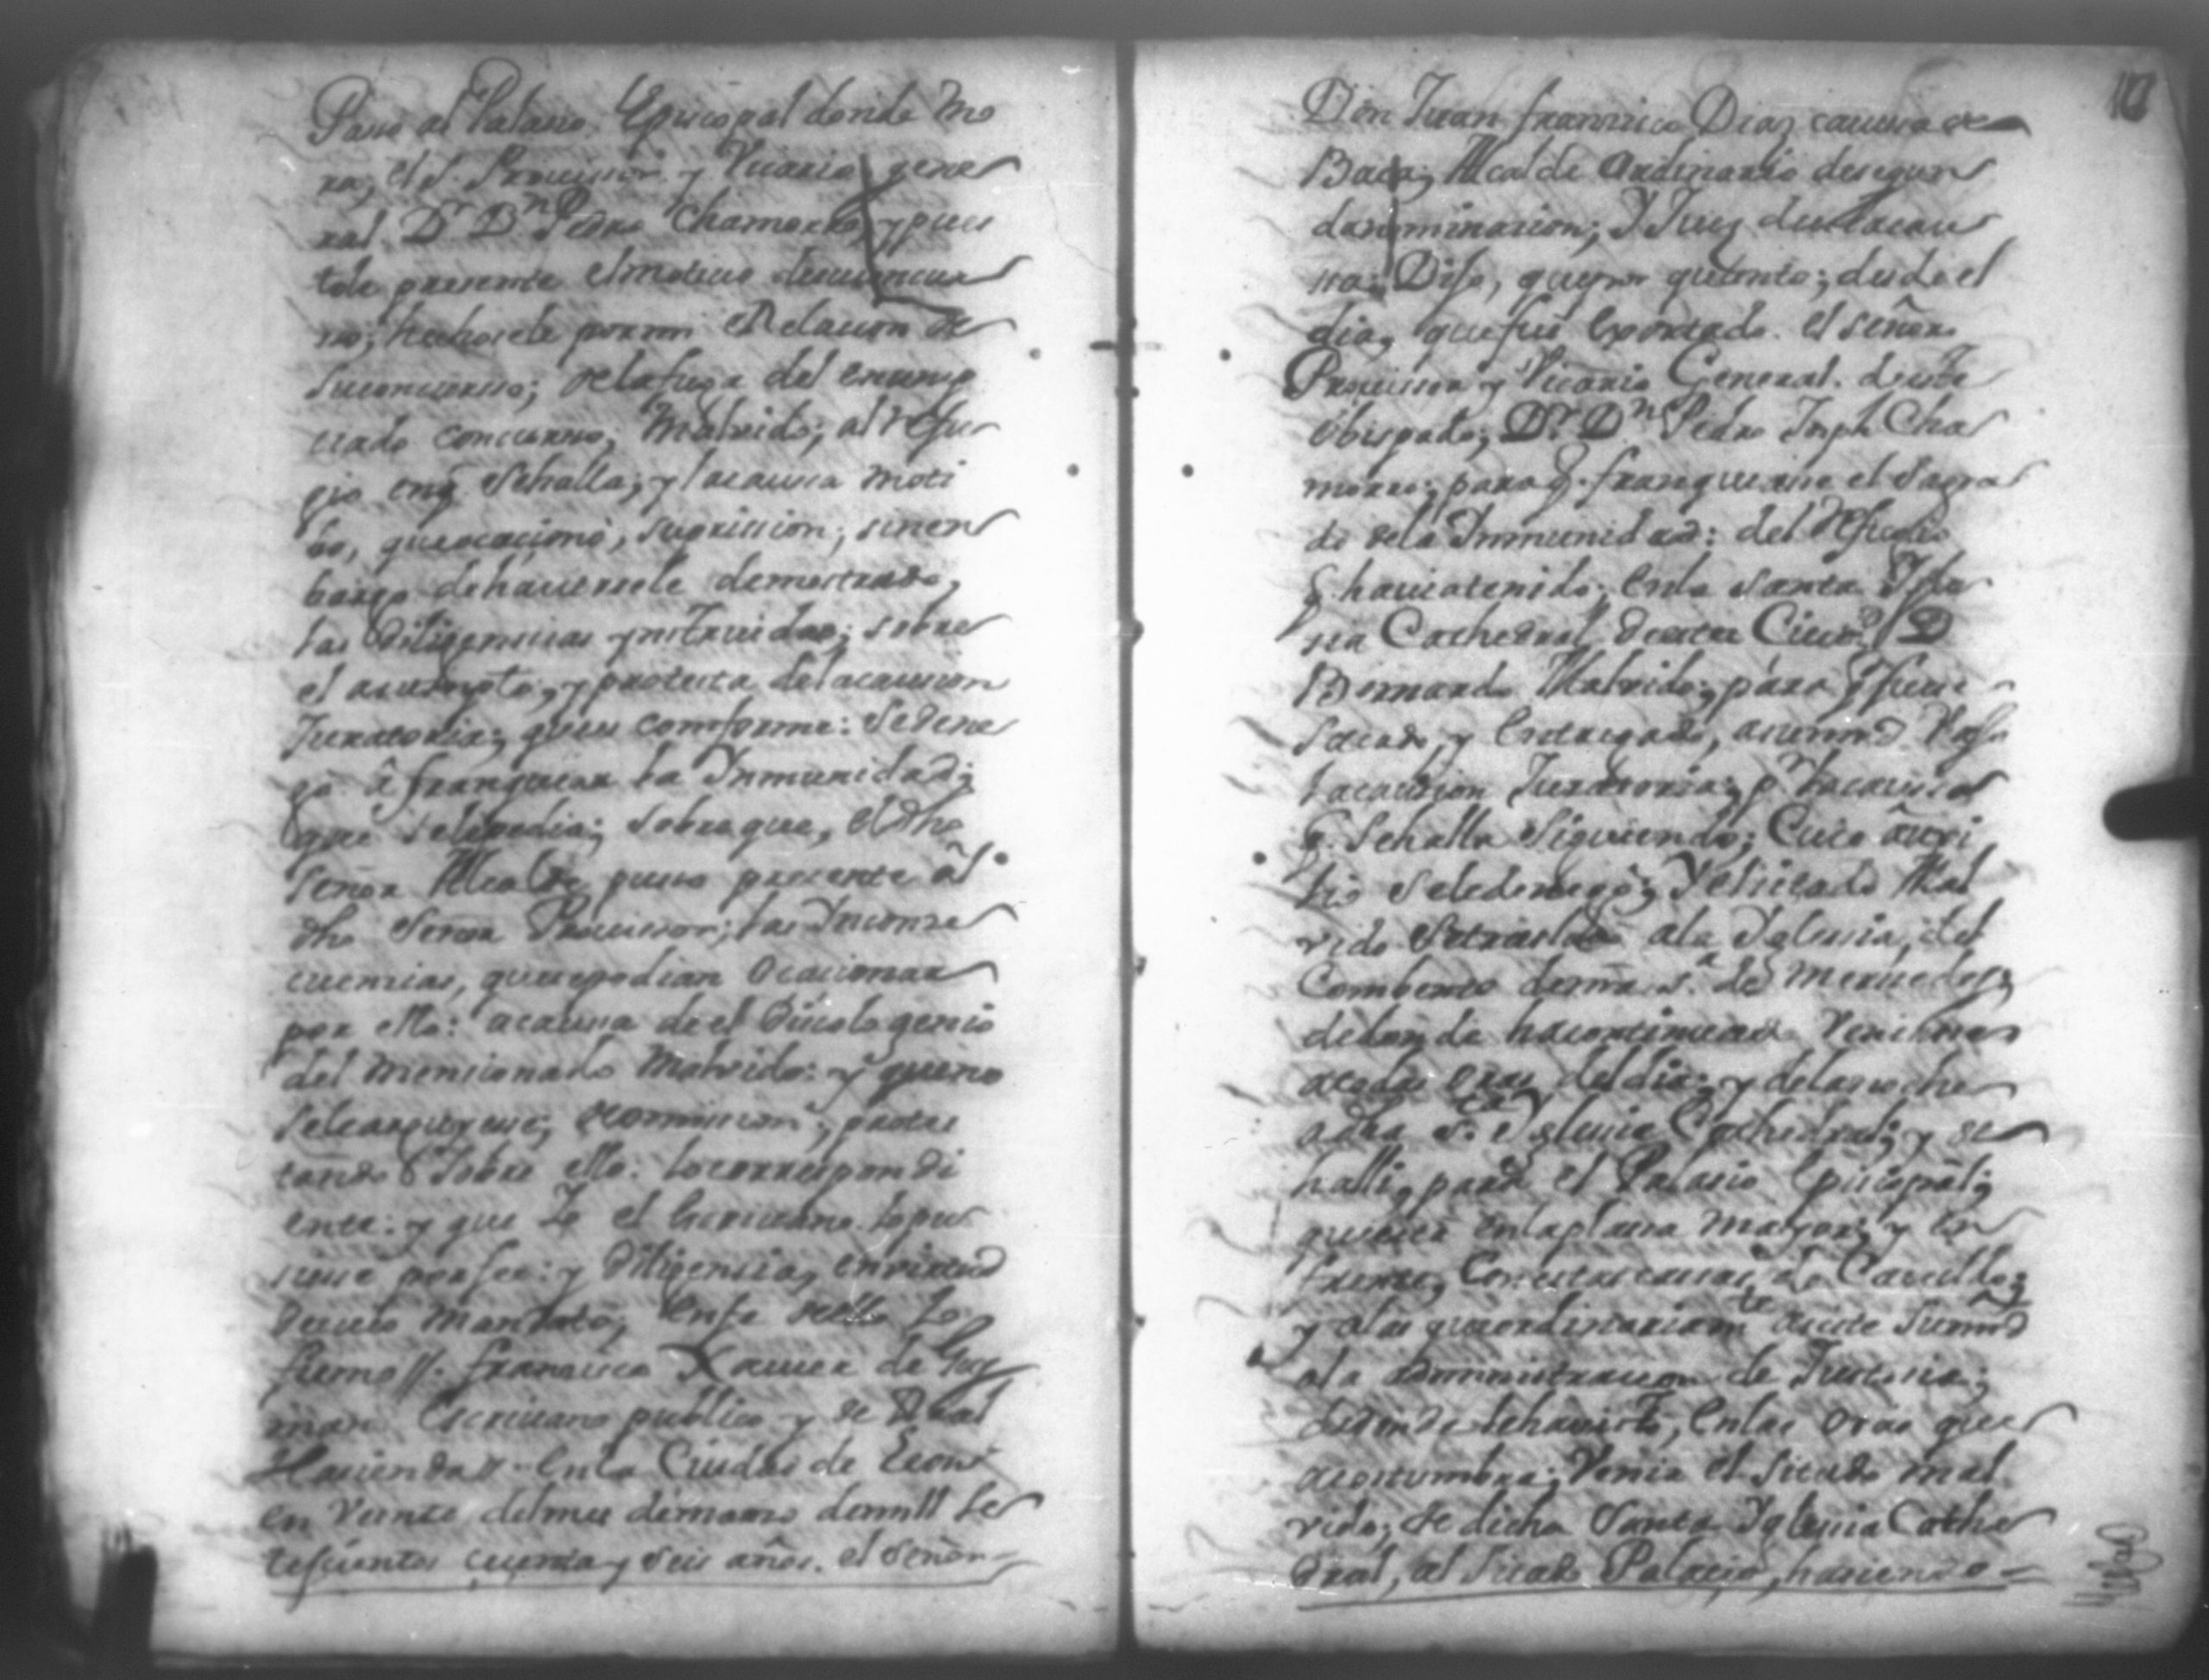 Paso al Palasio Episcopal donde mo
ra, el S. Provissor y Vicario gene
ral Dr Dn Pedro Chamorro, y pues
tole presente el motivo
no; hechosele por mi Relacion de
su concurso; de la fuga del enunp
ciado Malvido; al refu
gio enq̃ se halla; y la causa moti
bo, que ocacionó, su prission; sinen
bargo de haversele demostrado,
las Diligensias ynstruidas; sobre
el asumpto; y protesta de la caucion
Juratoria; que es comforme: Se dene
gó â franquear la Inmunidad;
que se le pedia; sobre que, el dho
Señor Alcalde puso presente âl
dho Señor Provissor; las Inconse
cuencias, que se podian Ocacionar
por ello: a causa de el Díscolo genio
del mensionado Malvido: y que no
se le arguyese; de omission; protes
tando sobre ello: lo correspondi
ente: y que Yo el Escrivano lo pu
siese por fee: y Diligensia, en virtud
de cuio Mandato; Enfe de ello Lo
firmo //. Francisco Xavier de Guz
man Escrivano publico y de Real
Hacienda = En la Ciudad de Leon
en Veinte del mes de marzo de mill se
tesientos y seis años. el Señor =
10
Don Juan Francisco Diaz de
Baca; Alcalde Ordinario de segun
da nominacion; Y Juez de la cau
sa; Dijo, que por quanto; desde el
dia, que fue Exortado el Señor
Provissor y Vicario General de este
Obispado; Dr. Dn Pedro Jph Cha
morro; para q. franquease el sagra
do de la Inmunidad: del Refugio
q havia tenido; En la Santa Igle
sia Cathedral de esta Ciud. D
Bernardo Malvido; para q fuese
Sacado, y Entregado, a su md Vajo
la caucion Juratoria; pr la causa
q. se halla Siguiendo; Cuio âuxi
lio se le denegó; Y el sitado Mal
vido a la Yglesia, del
Combento de nra Sa de Mercedes;
de donde ha continuado Venirse
a todas oras del dia; y de la noche
a dha Sta Yglesia Cathedral; y de
halli, para el Palasio Episcopal;
que esta en la plasa Mayor; y en
frente, Con estas casas, de Cavildo;
y a las que ordinariamte asiste su md
a la administracion de Justisia;
de donde le ha visto, En las oras que
acostumbra; Venir el Sitado Mal
vido; de dicha Santa Yglesia Cathe
dral, al Sitado Palacio, haciendo =